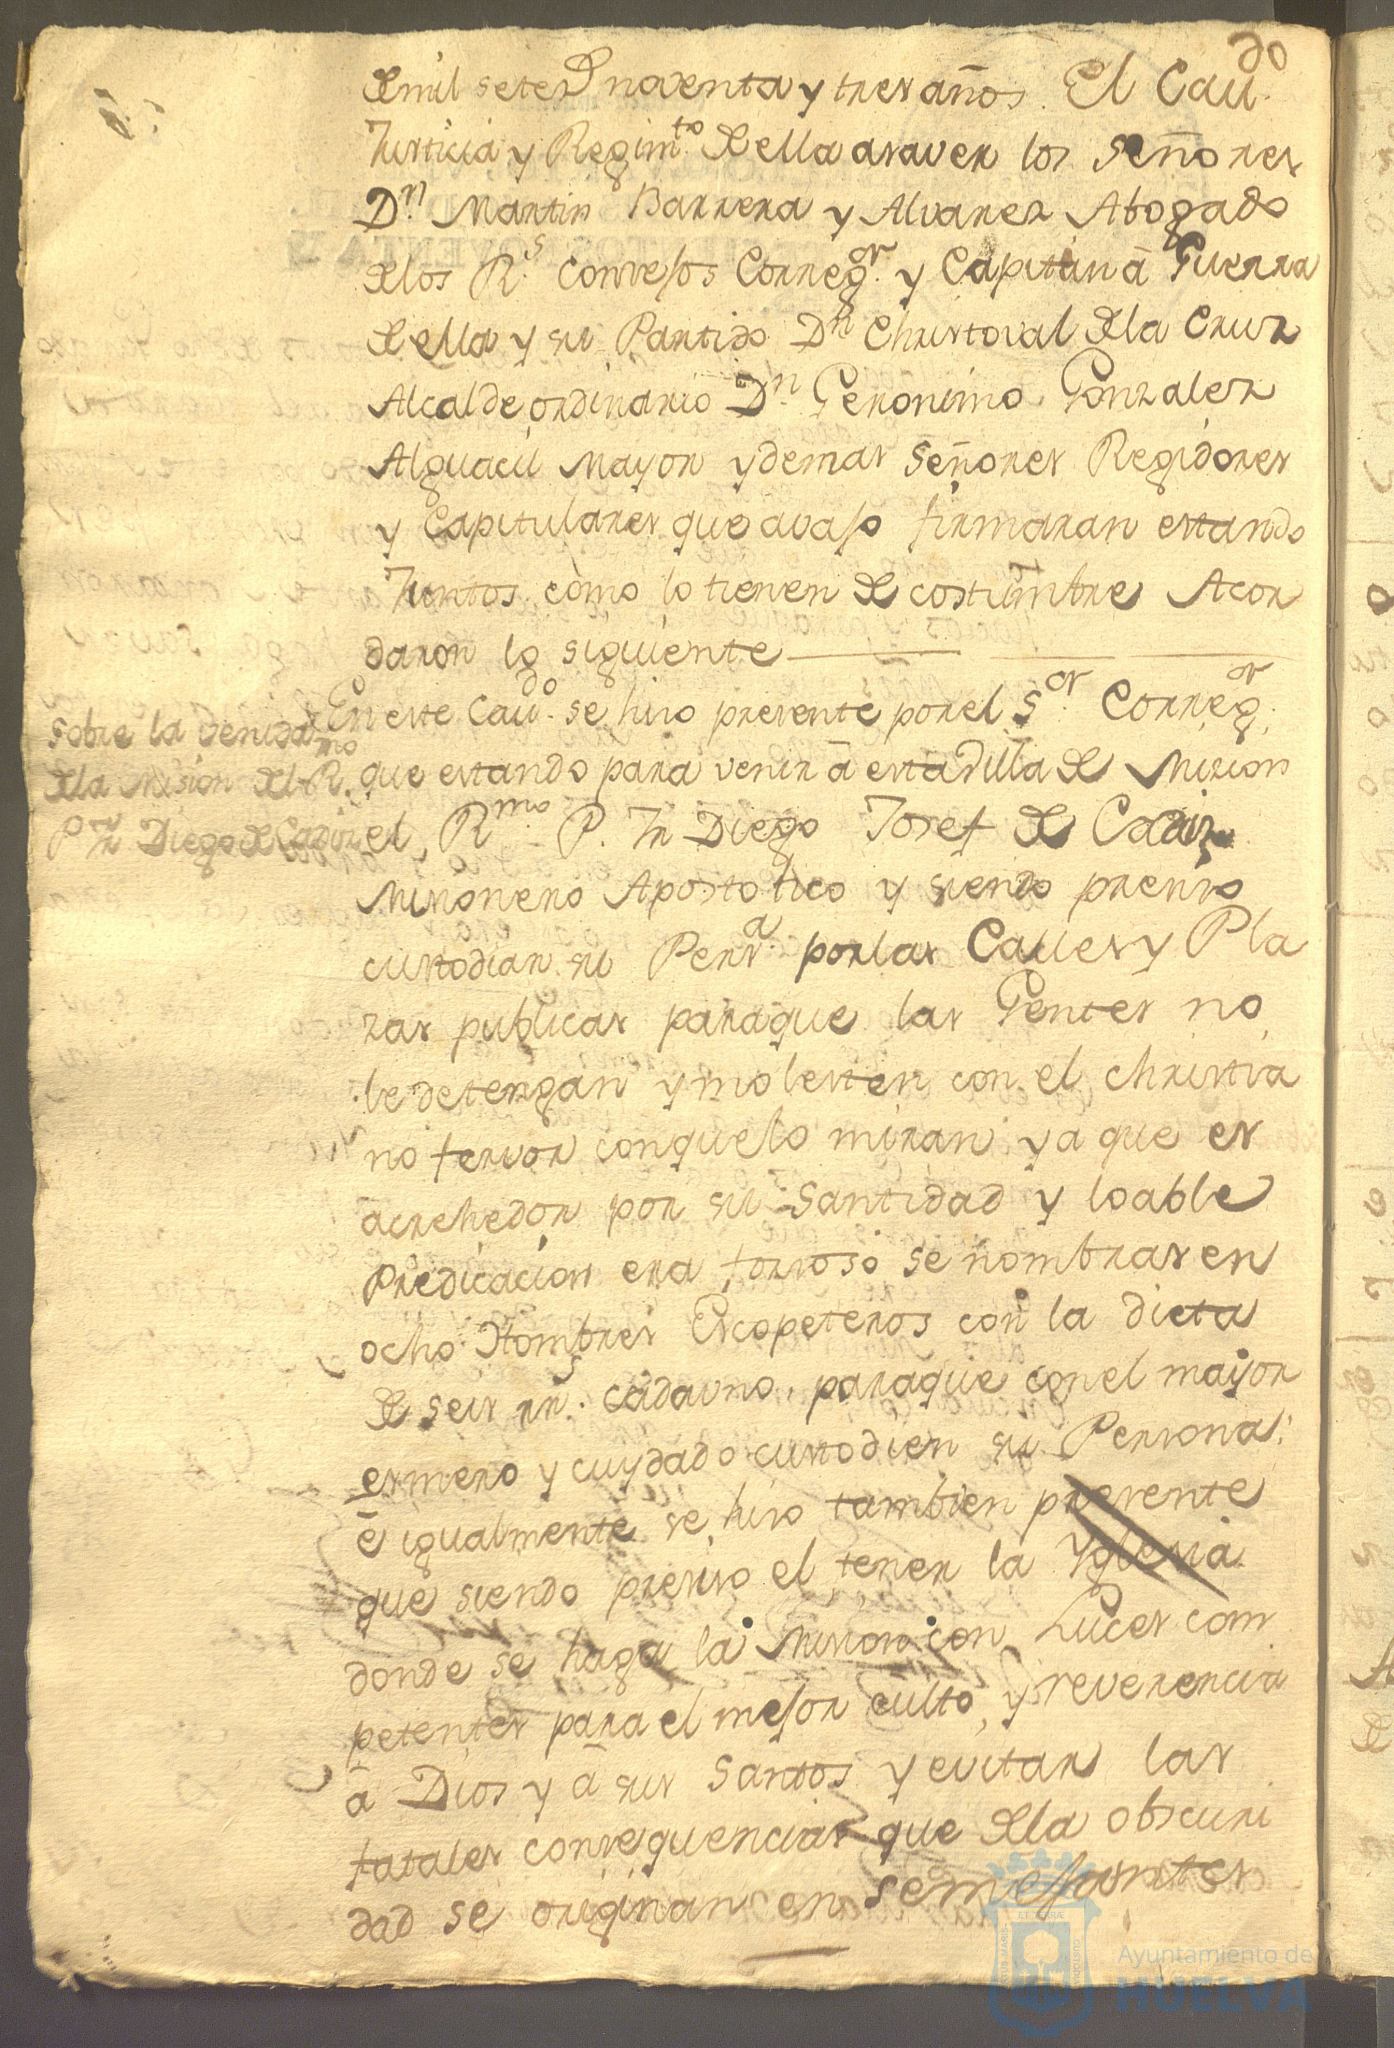 de mil setecs noventa y tres años. El Cavdo.
Justicia y Regimto. de ella asaver los señores
Dn. Martin Barrera y Alvarez Abogado
de los Rs. Consejos Corregor. y Capitan á Guerra
de ella y su Partido Dn Christoval de la Cruz
Alcalde ordinario Dn. Geronimo Gonzalez
Alguacil Mayor y demas señores Regidores
y Capitulares que avajo firmaran estando
Juntos como lo tienen de costumbre Acor
daron lo siguiente
En este Cavdo. se hizo presente por el Sor. Corregor.
que estando para venir á esta Villa de Mision
el Rmo. P. Fr Diego Josef de Cadiz
Misionero Apostolico y siendo preciso
custodiar su Persa. por las Calles y Pla
zas publicas para que las Gentes no
le detengan y molesten con el christia
no fervor con que lo miran ya que es
acrehedor por su Santidad y loable
Predicacion era forzoso se nombrasen
ocho Hombres Escopeteros con la dieta
de seis rrs. cada uno, para que con el mayor
esmero y cuydado custodien su Persona:
é igualmente se hizo tambien presente
que siendo preciso el tener la Yglesia
donde se haga la Mision con Luces com
petentes para el mejor culto, y reverencia
á Dios y á sus Santos y evitar las
fatales consequencias que de la obscuri
dad se originan en semejantes
sobre la venida
de la Mision del Rmo.
P Fr Diego de Cadiz
Ayuntamiento de
HUELVA